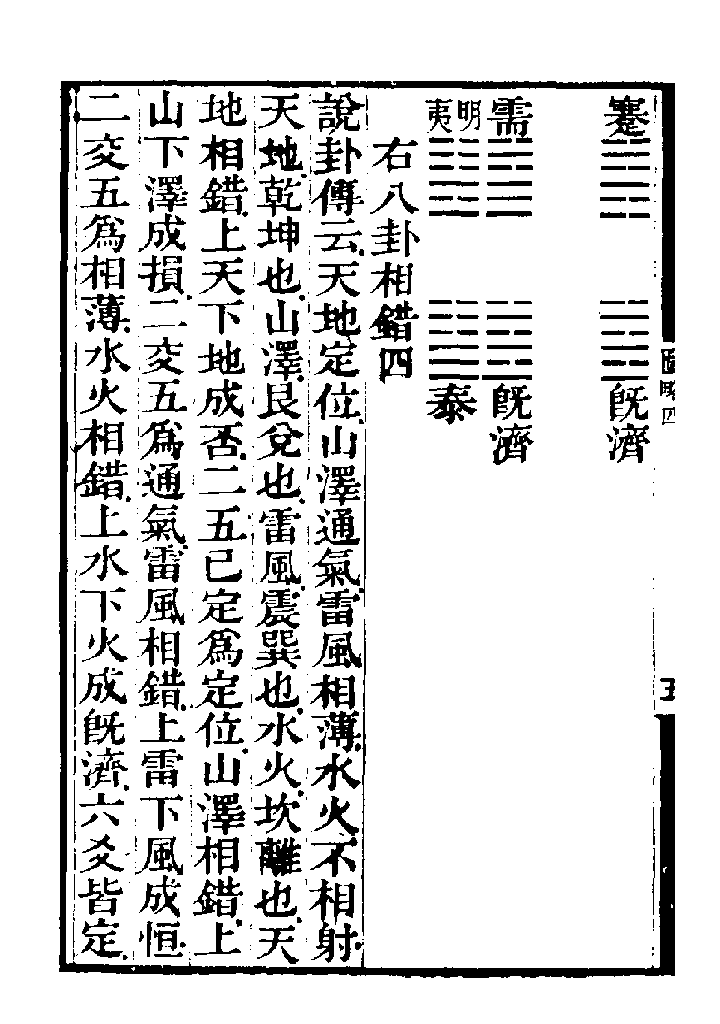 圖略四
五
蹇 既濟
需 既濟
明夷 泰
右八卦相錯四
說卦傳云天地定位山澤通氣雷風相薄水火不相射
天地乾坤也山澤艮兌也雷風震巽也水火坎離也天
地相錯上天下地成否二五已定爲定位山澤相錯上
山下澤成損二交五爲通氣雷風相錯上雷下風成恒
二交五爲相薄水火相錯上水下火成既濟六爻皆定